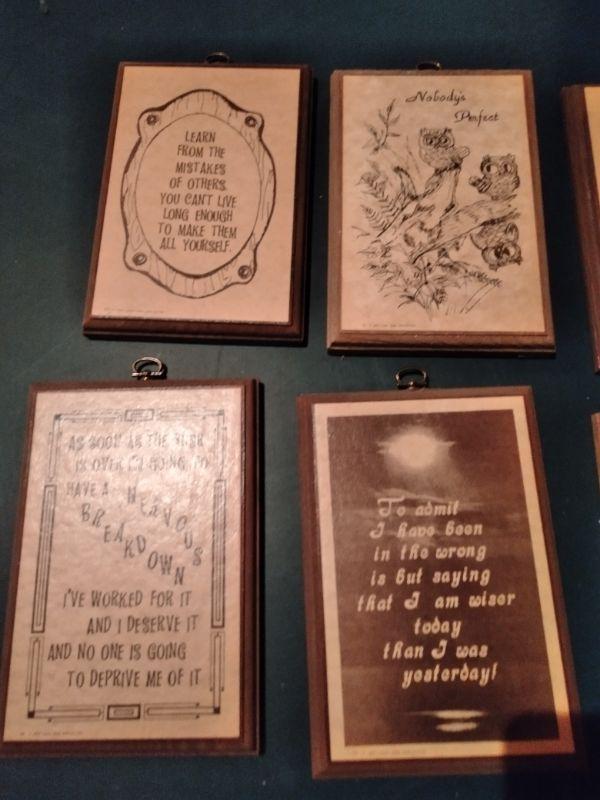 LEARN
FROM THE
MISTAKES
OF OTHERS.
YOU CAN'T LIVE
LONG ENOUGH
TO MAKE THEM
ALL YOURSELF.
Nobody's
Perfect
AS SOON AS THE RUSH
IS OVER I'M GOING TO
HAVE A NERVOUS
BREAKDOWN
I'VE WORKED FOR IT
AND I DESERVE IT
AND NO ONE IS GOING
TO DEPRIVE ME OF IT
To admit
I have been
in the wrong
is but saying
that I am wiser
today
than I was
yesterday!